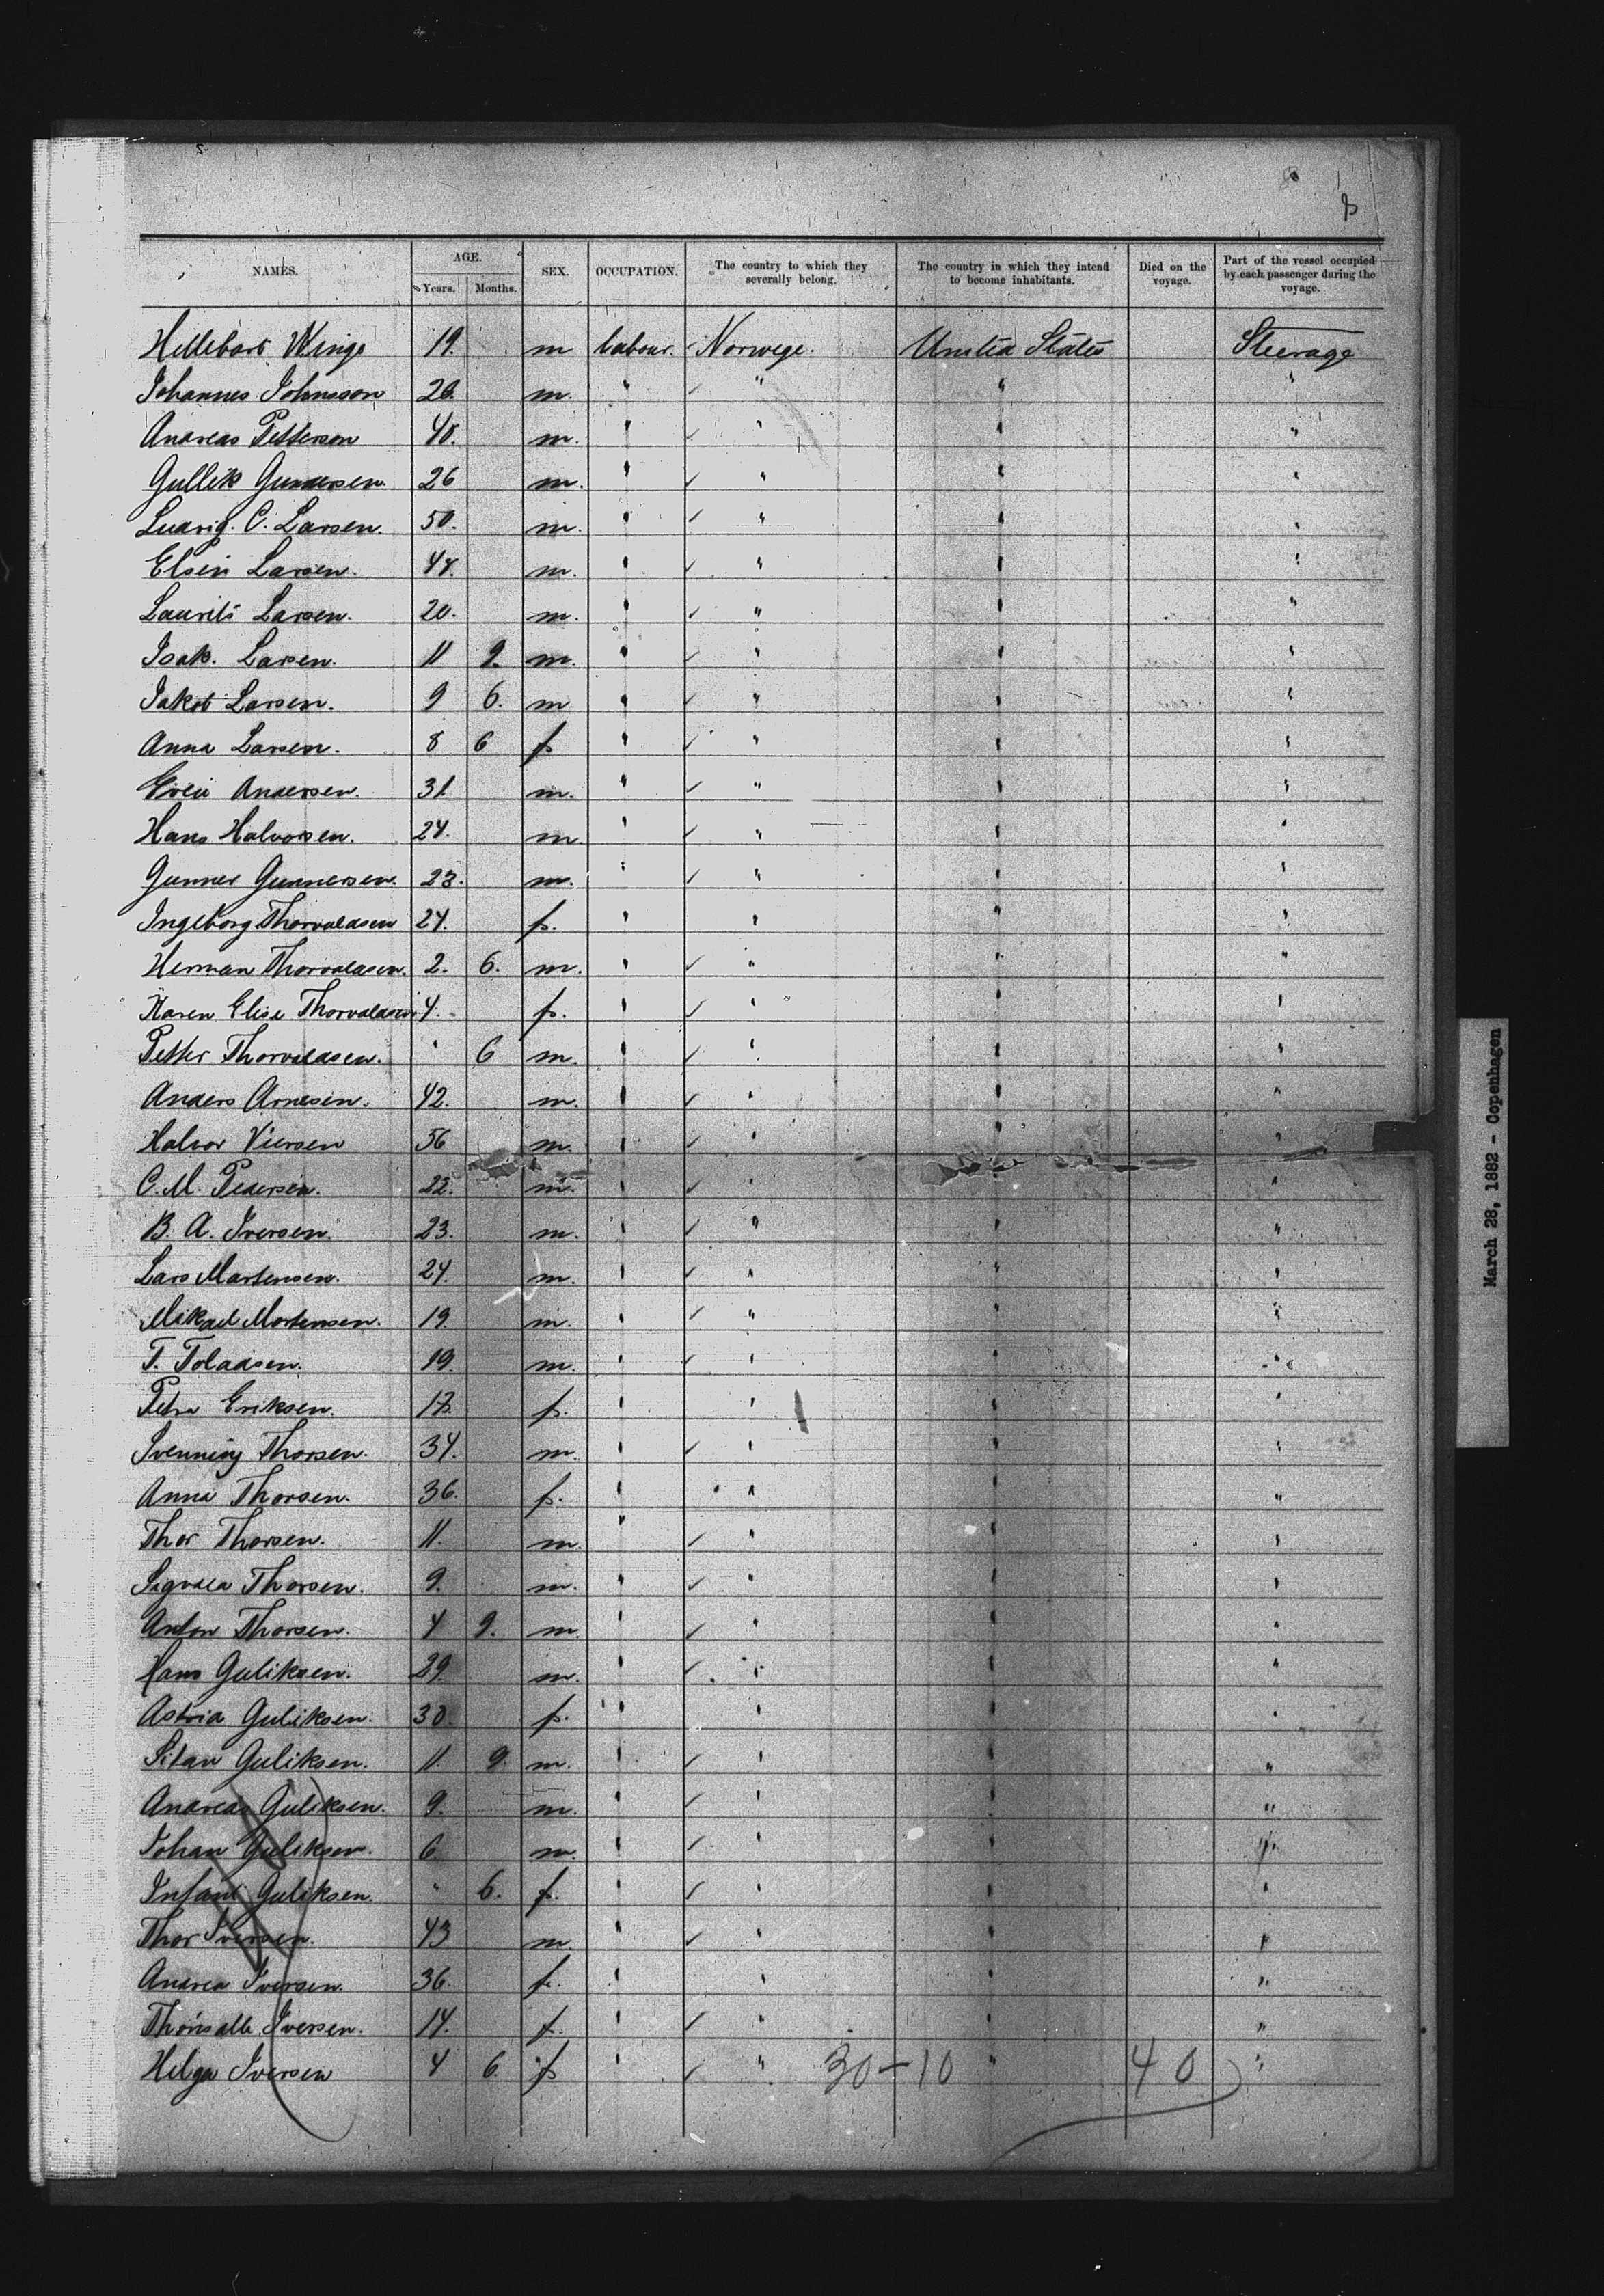 NAMES. AGE. Years. Months. SEX. OCCUPATION. The country to which they severally belong. The country in which they intend to become inhabitants. Died on the voyage. Part of the vessel occupied by each passenger during the voyage.
Hellebart Winge 19. m labour. Norwege. United States Steerage
Johannes Johnsson 26. m. " " " "
Andreas Petterson 40. m. " " " "
Gullik Gundersen 26 m. " " " "
Ludvig. C. Larsen. 50. m. " " " "
Elsin Larsen. 44. m. " " " "
Laurits Larsen. 20. m. " " " "
Isak. Larsen. 11 9. m. " " " "
Jakob Larsen. 9 6. m " " " "
Anna Larsen. 8 6 f " " " "
Andersen. 31. m. " " " "
Hans Halvorsen. 24. m. " " " "
Gunner Gunnersen. 23. m. " " " "
Ingeborg Thorvaldsen 24. f. " " " "
Herman Thorvaldsen. 2. 6. m. " " " "
Karen Elise Thorvaldsen 4. f. " " " "
Petter Thorvaldsen. " 6 m. " " " "
Anders Arnesen. 42. m. " " " "
Halvor Viersen 56 m. " " " "
C. M. Pedersen. 22. m. " " " "
B. A. Iversen. 23. m. " " " "
Lars Martensen. 24. m. " " " "
Mikael Mortensen. 19. m. " " " "
T. Toladsen. 19. m. " " " "
Petra Eriksen. 17. f. " " " "
Svenning Thorsen. 34. m. " " " "
Anna Thorsen. 36. f. " " " "
Thor Thorsen. 11. m. " " " "
Sigvald Thorsen. 9. m. " " " "
Anton Thorsen. 4 9. m. " " " "
Hans Guliksen. 29. m. " " " "
Astrid Guliksen. 30. f. " " " "
Guliksen. 11. 9. m. " " " "
Andreas Guliksen. 9. m. " " " "
Johan Guliksen. 6 m. " " " "
Infant Guliksen. " 6. f. " " " "
Thor Iversen. 43 m " " " "
Andrea Iversen. 36. f. " " " "
Iversen. 14. f. " " " "
Helga Iversen 4 6. f " " 30-10 " 40 "
March 28, 1882 - Copenhagen